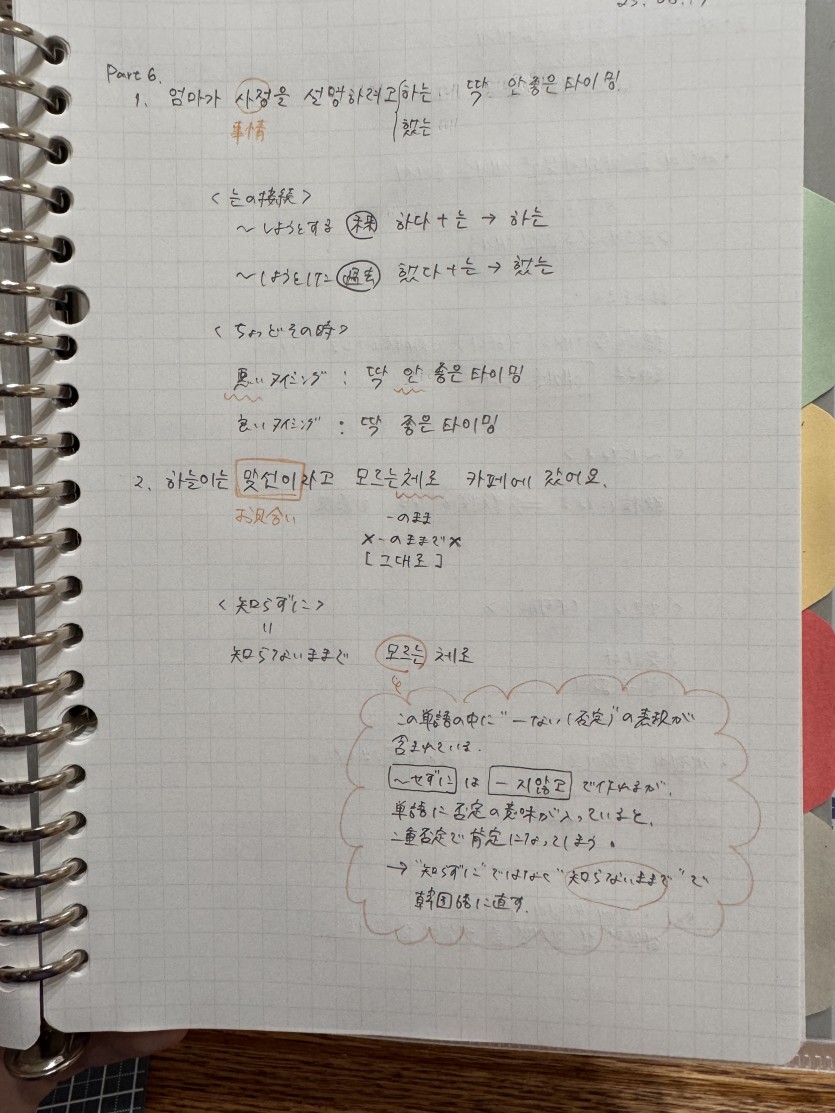 25.08.19
Part 6.
1. 엄마가 사정을 설명하려고 하는 딱 안 좋은 타이밍
했는
事情
<는の接続>
~しようとする 未来 하다 + 는 → 하는
~しようとした 過去 했다 + 는 → 했는
<ちょっどその時>
悪いタイミング : 딱 안 좋은 타이밍
良いタイミング : 딱 좋은 타이밍
2. 하늘이는 맞선이라고 모르는체로 카페에 갔어요.
お見合い
-のまま
×-のままで×
[그대로]
<知らずに>
〃
知らないままで 모르는 체로
この単語の中に"-ない(否定)"の表現が
含まれている.
~せずに は -지않고 で作れるが,
単語に否定の意味が入っていると,
二重否定で肯定になってしまう。
→"知らずに"ではなく"知らないままで"で
韓国語に直す.